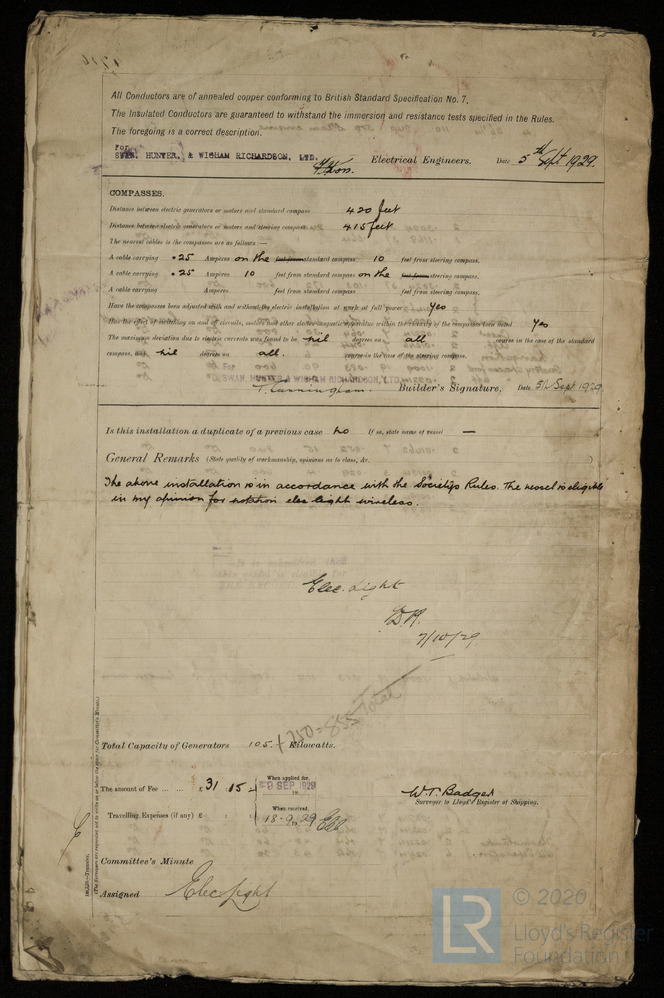 All Conductors are of annealed copper conforming to British Standard Specification No. 7.
The Insulated Conductors are guaranteed to withstand the immersion and resistance tests specified in the Rules.
The foregoing is a correct description.
For
SWAN, HUNTER, & WIGHAM RICHARDSON, LTD. Electrical Engineers. Date 5th Sept 1929.
COMPASSES.
Distance between electric generators or motors and standard compass 420 feet
Distance between electric generators or motors and steering compass 415 feet
The nearest cables to the compasses are as follows:—
A cable carrying .25 Amperes on the feet from standard compass 10 feet from steering compass.
A cable carrying .25 Amperes 10 feet from standard compass on the feet from steering compass.
A cable carrying Amperes feet from standard compass feet from steering compass.
Have the compasses been adjusted with and without the electric installation at work at full power yes
Has the effect of switching on and off circuits, motors and other electro-magnetic apparatus within the vicinity of the compasses been noted yes
The maximum deviation due to electric currents was found to be nil degrees on all course in the case of the standard
compass, and nil degrees on all. course in the case of the steering compass.
For
SWAN, HUNTER & WIGHAM RICHARDSON, LTD.
T. Cunningham Builder's Signature. Date 5th Sept 1929
Is this installation a duplicate of a previous case no If so, state name of vessel —
General Remarks (State quality of workmanship, opinions as to class, &c. )
The above installation is in accordance with the Society's Rules. The vessel is eligible
in my opinion for notation elec light wireless.
Elec. Light
7/10/29
+ 750 = 855 Total
Total Capacity of Generators 105. Kilowatts.
The amount of Fee ... ... £ 31 : 15 :—
When applied for,
9 SEP 1929
W.T. Badger
Surveyor to Lloyd's Register of Shipping.
Travelling Expenses (if any) £ : :
When received,
18.9.29
Committee's Minute
Assigned Elec Light
© 2020
LR
Lloyd's Register
Foundation